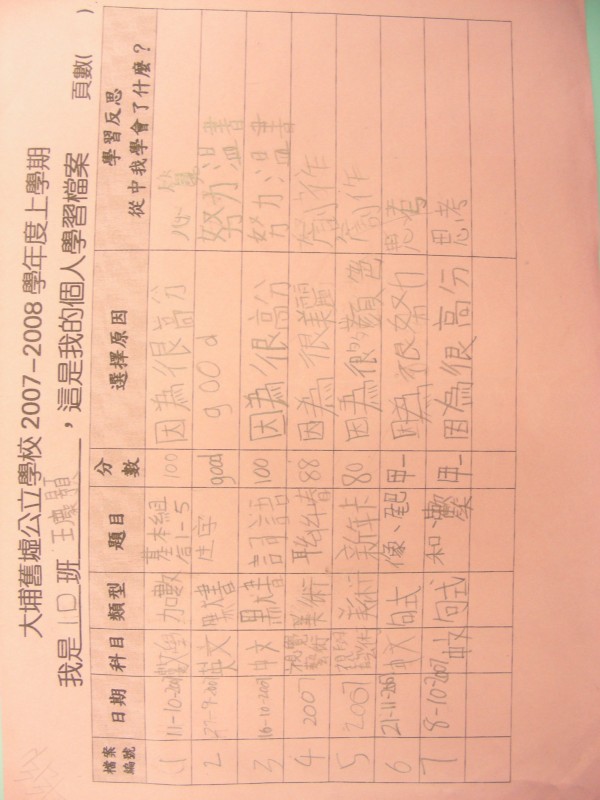 大埔舊墟公立學校 2007-2008 學年度上學期
我是 1D 班 ，這是我的個人學習檔案 頁數( )
檔案編號 日期 科目 類型 題目 分數 選擇原因 學習反思 從中我學會了什麼？
1 11-10-2007 數學 加數 基本組合1-5 100 因為很高分 心算
2 27-9-2007 英文 默書 生字 good good 努力溫書
3 16-10-2007 中文 默書 詞語 100 因為很高分 努力溫書
4 2007 視覺藝術 美術 88 因為很美麗 創作
5 2007 視覺藝術 美術 新年卡 80 因為很多顏色 創作
6 21-11-2007 中文 句式 甲- 因為很努力 思考
7 8-10-2007 中文 句式 甲- 因為很高分 思考